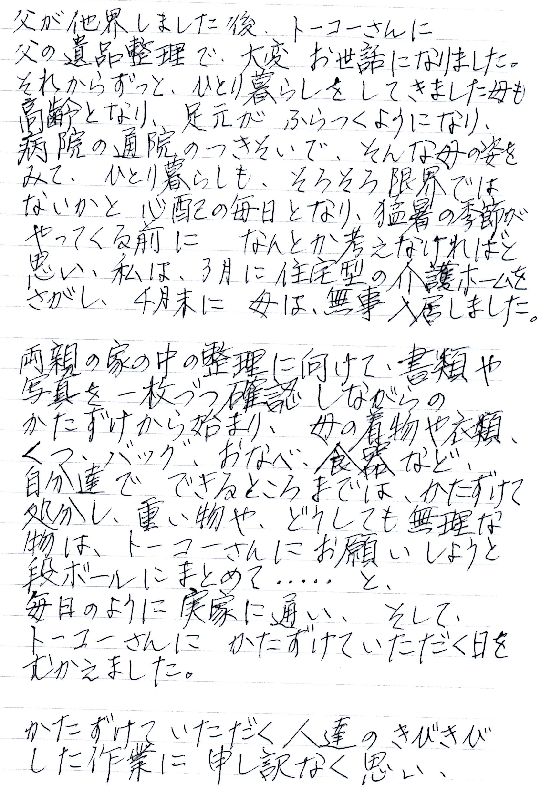 父が他界しました後、トーコーさんに
父の遺品整理で、大変 お世話になりました。
それからずっと、ひとり暮らしをしてきました母も
高齢となり、足元が ふらつくようになり、
病院の通院のつきそいで、そんな母の姿を
みて、ひとり暮らしも、そろそろ限界では
ないかと 心配の毎日となり、猛暑の季節が
やってくる前に なんとか考えなければと
思い、私は、3月に住宅型の介護ホームを
さがし、4月末に 母は、無事 入居しました。
両親の家の中の整理に向けて、書類や
写真を一枚づつ確認しながらの
かたずけから始まり、母の着物や衣類、
くつ、バッグ、おなべ、食器など、
自分達で できるところまでは、かたずけて
処分し、重い物や、どうしても無理な
物は、トーコーさんにお願いしようと
段ボールにまとめて・・・・・ と、
毎日のように実家に通い、 そして、
トーコーさんに かたずけていただく日を
むかえました。
かたずけていただく人達のきびきび
した作業に 申し訳なく思い、